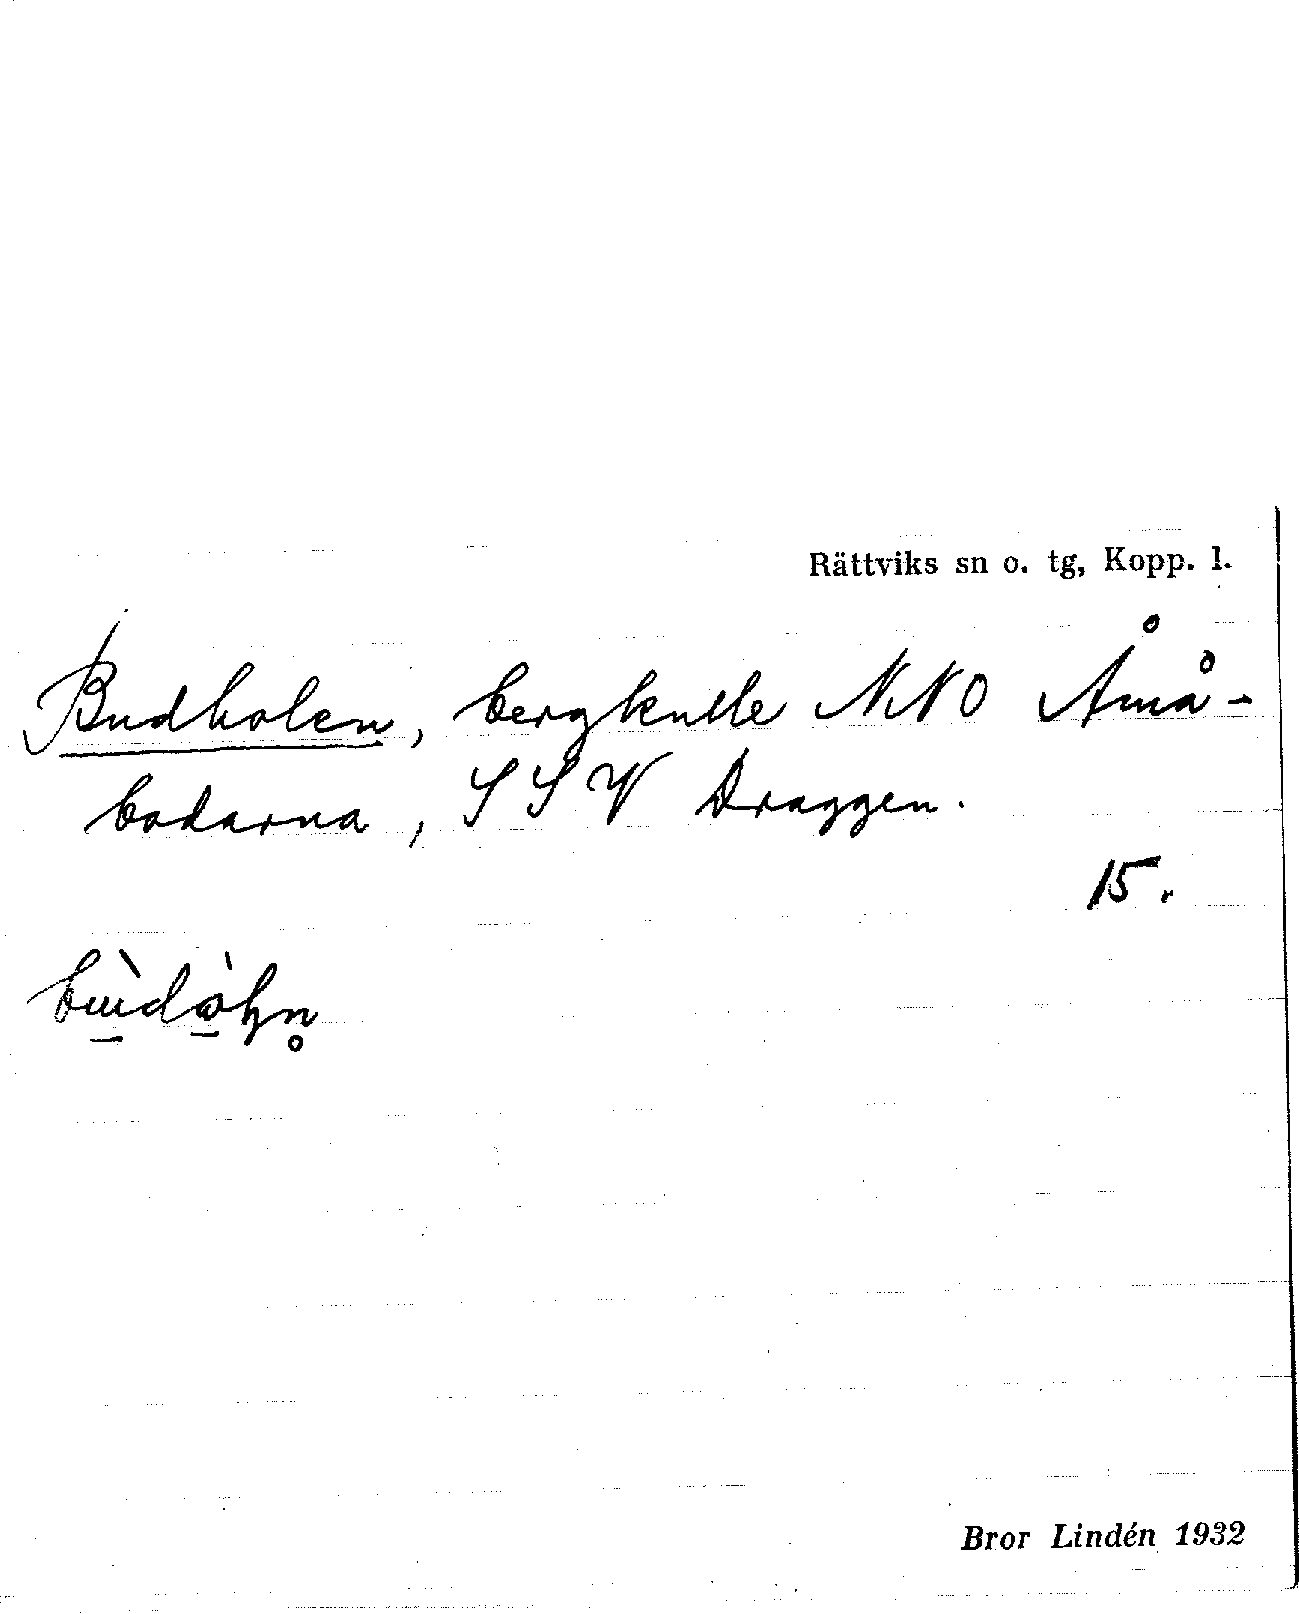 Rättviks sn o. tg, Kopp. l.
Budholen, bergkulle NNO Åmå-
bodarna, SSV Draggen.
15.
Bror Lindén 1932